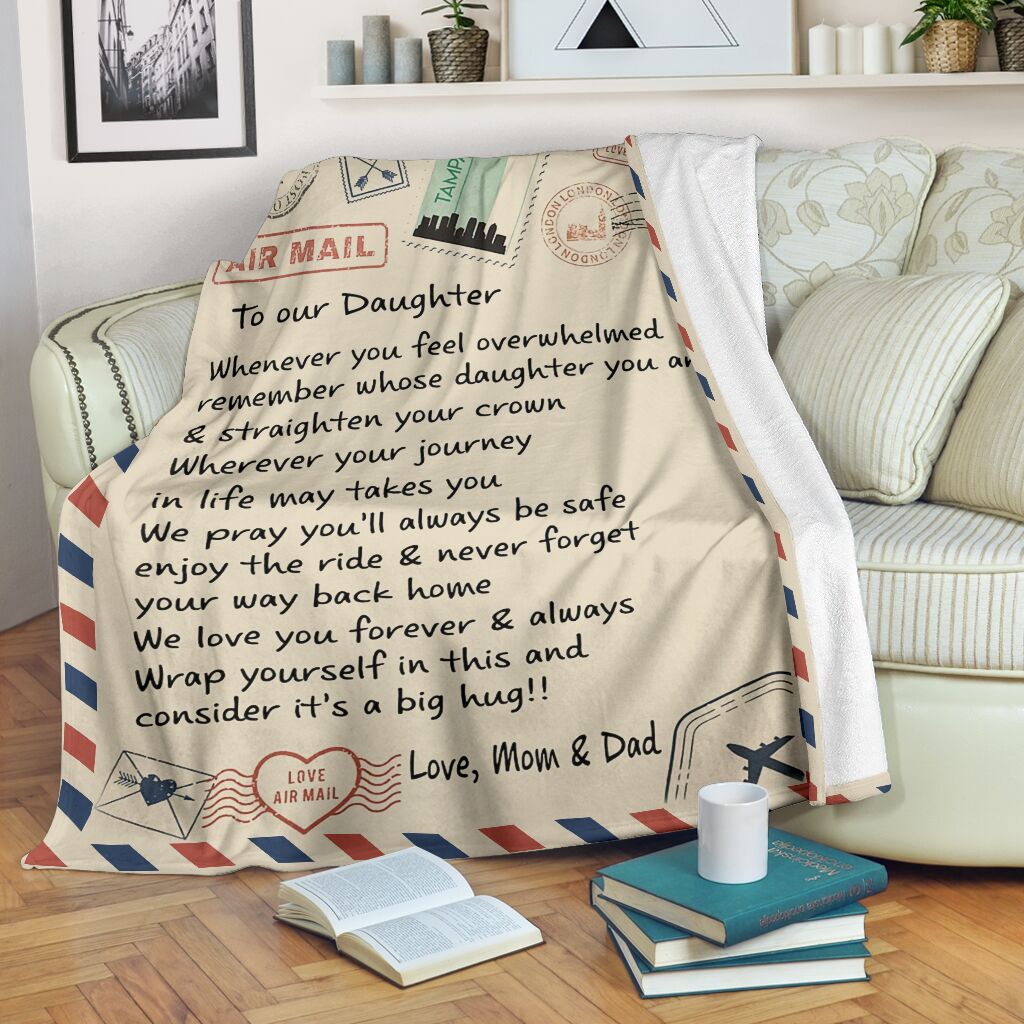 TAMPA
LONDON LONDON LONDON LONDON
AIR MAIL
To our Daughter
Whenever you feel overwhelmed
remember whose daughter you ar
& straighten your crown
Wherever your journey
in life may takes you
We pray you'll always be safe
enjoy the ride & never forget
your way back home
We love you forever & always
Wrap yourself in this and
consider it's a big hug!!
Love, Mom & Dad
LOVE
AIR MAIL
Medicinska
enciklopedija